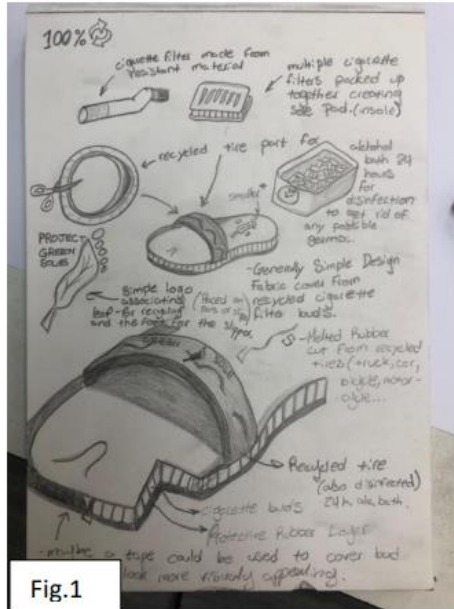 100%
cigarette filter made from
resistant material
multiple cigarette
filters packed up
together creating
sole pad. (insole)
recycled tire part for
alcohol
bath 24
hours
for
disinfection
to get rid of
any possible
germs.
smaller
PROJECT
GREEN
SOLES
simple logo
associating
leaf-for recycling
and the foot for the
- Generally Simple Design
Fabric cover from
recycled cigarette
filter buds.
- Melted Rubber
cut from recycled
tires (truck, car,
bicycle, motor-
cycle...
Recycled tire
(also disinfected)
24h. alc. bath.
cigarette buds
Protective Rubber Layer
- maybe a tape could be used to cover bud
look more visually appealing.
Fig.1